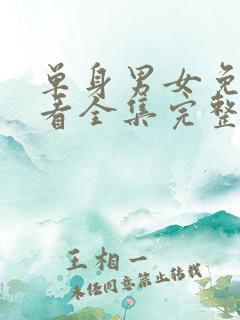 单身男女免
看全集完整
王相一
未经同意禁止转载